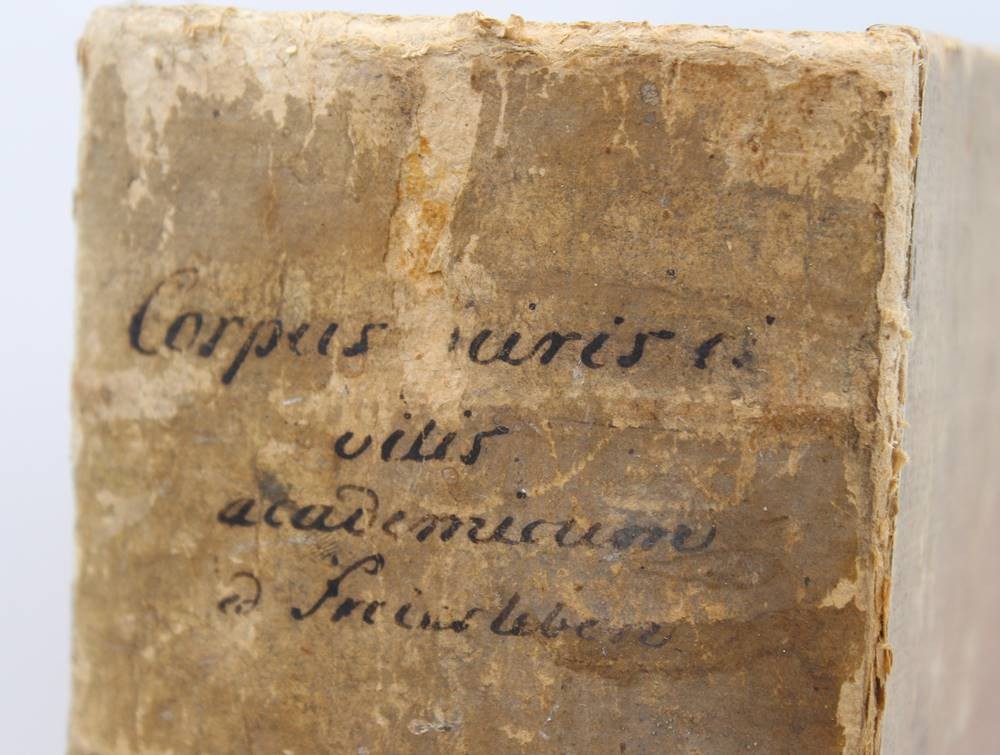 Corpus iuris ci
vilis
academicum
ed Freiesleben